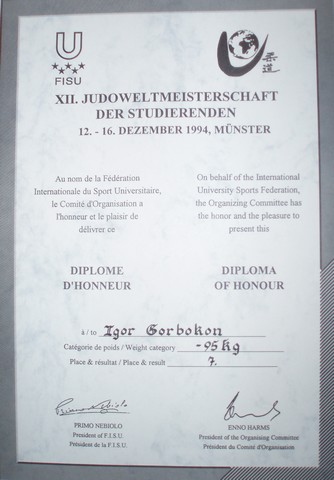 U
FISU
柔道
XII. JUDOWELTMEISTERSCHAFT
DER STUDIERENDEN
12. - 16. DEZEMBER 1994, MÜNSTER
Au nom de la Fédération
Internationale du Sport Universitaire,
le Comité d'Organisation a
l'honneur et le plaisir de
délivrer ce
On behalf of the International
University Sports Federation,
the Organizing Committee has
the honor and the pleasure to
present this
DIPLOME
D'HONNEUR
DIPLOMA
OF HONOUR
à / to Igor Gorbokon
Catégorie de poids / Weight category -95 Kg
Place & résultat / Place & result 7.
PRIMO NEBIOLO
President of F.I.S.U.
Président de la F.I.S.U.
ENNO HARMS
President of the Organizing Committee
Président du Comité d'Organisation